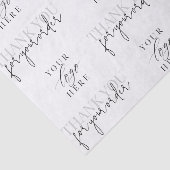 THANK YOU
for your order
YOUR
logo
HERE
THANK YOU
for your order
YOUR
logo
HERE
THANK YOU
for your order